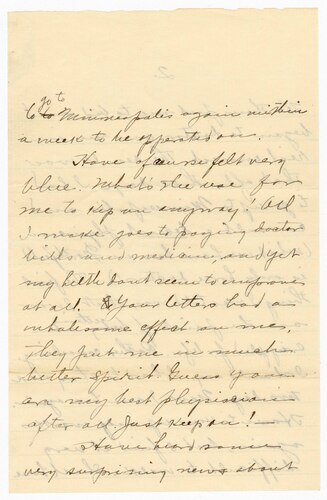 go to
to Minneapolis again within
a week to be operated on.
Have of course felt very
blue. What's the use for
me to keep on anyway! All
I make goes to paying doctor
bills and medicine, and yet
my helth dont seem to improve
at all. & Your letters had a
wholesome effect on me,
They put me in much
better spirit. Guess you
are my best physician
after all. Just keep on! —
Have heard some
very surprising news about